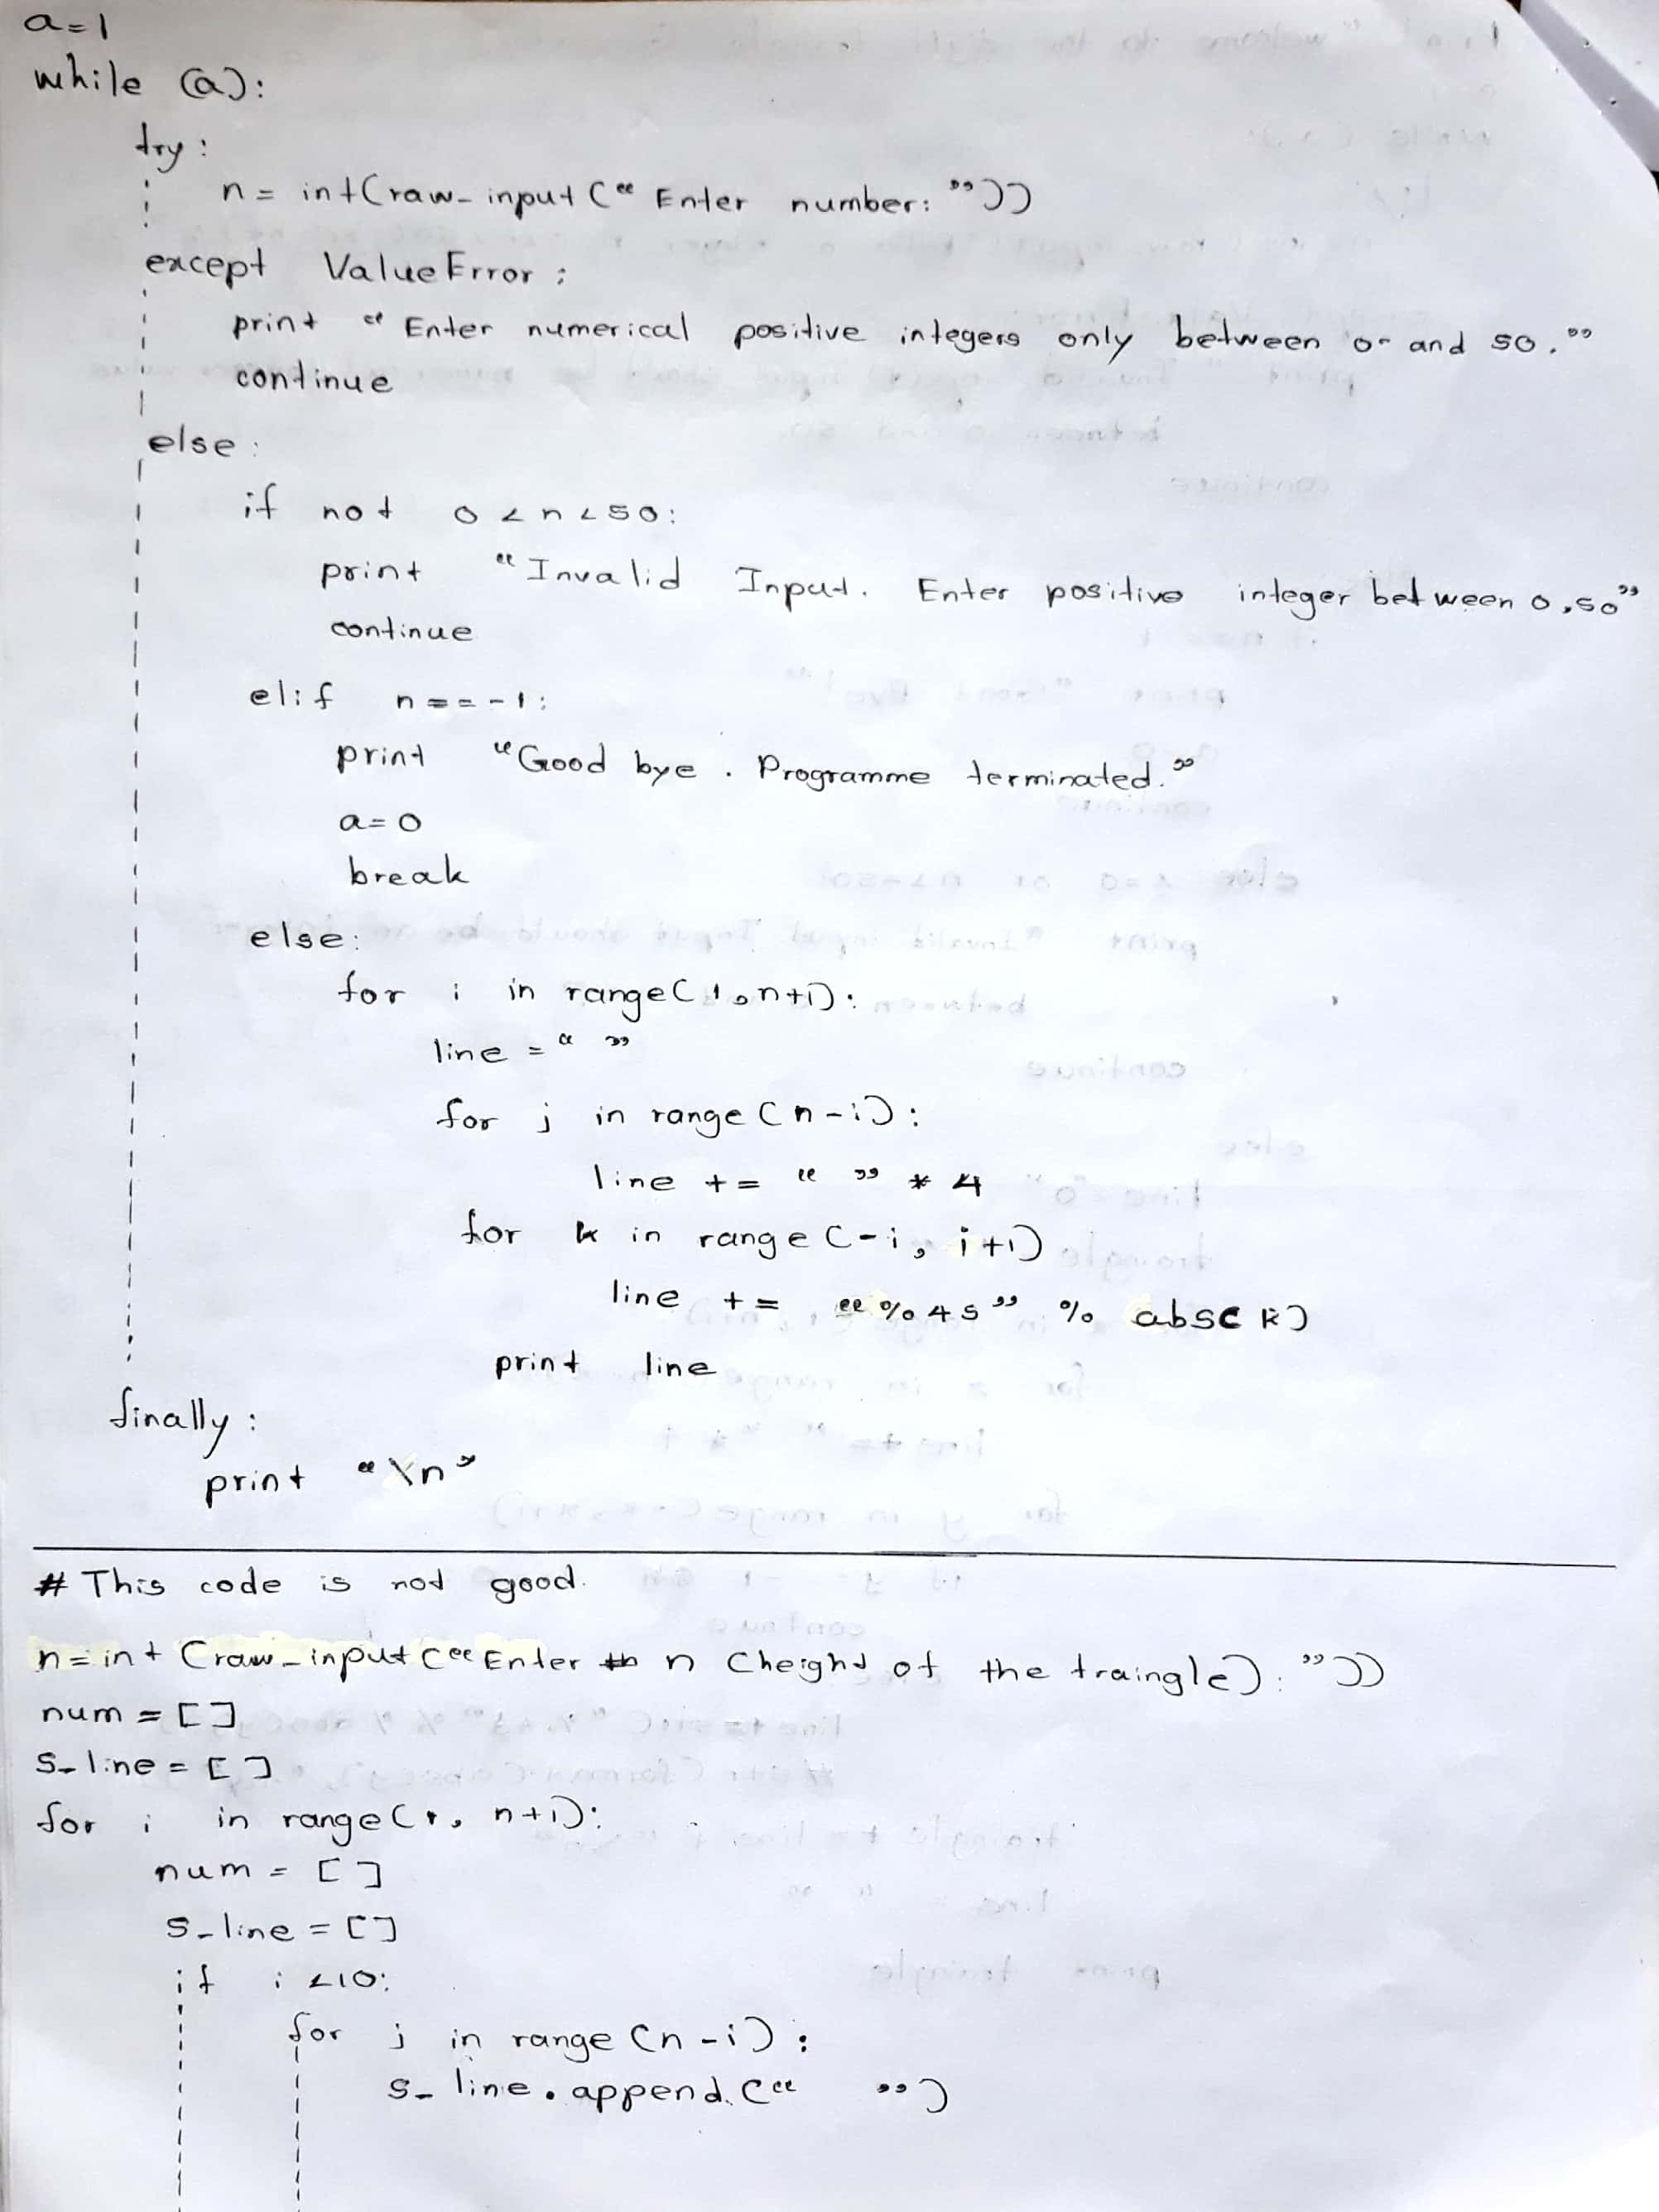 a=1
while (a):
try:
n = int(raw_input(“Enter number: ”))
except ValueError:
print “Enter numerical positive integers only between 0 and 50.”
continue
else:
if not 0<n<50:
print “Invalid Input. Enter positive integer between 0,50”
continue
elif n==-1:
print “Good bye. Programme terminated.”
a=0
break
else:
for i in range(1,n+1):
line = “ ”
for j in range(n-i):
line += “ ” * 4
for k in range(-i, i+1)
line += “%4s” % abs(k)
print line
finally:
print “\n”
# This code is not good.
n=int(raw_input(“Enter n (height of the traingle): ”))
num = []
s_line = []
for i in range(1, n+1):
num = []
s_line = []
if i <10:
for j in range(n-i):
s_line.append(“ ”)